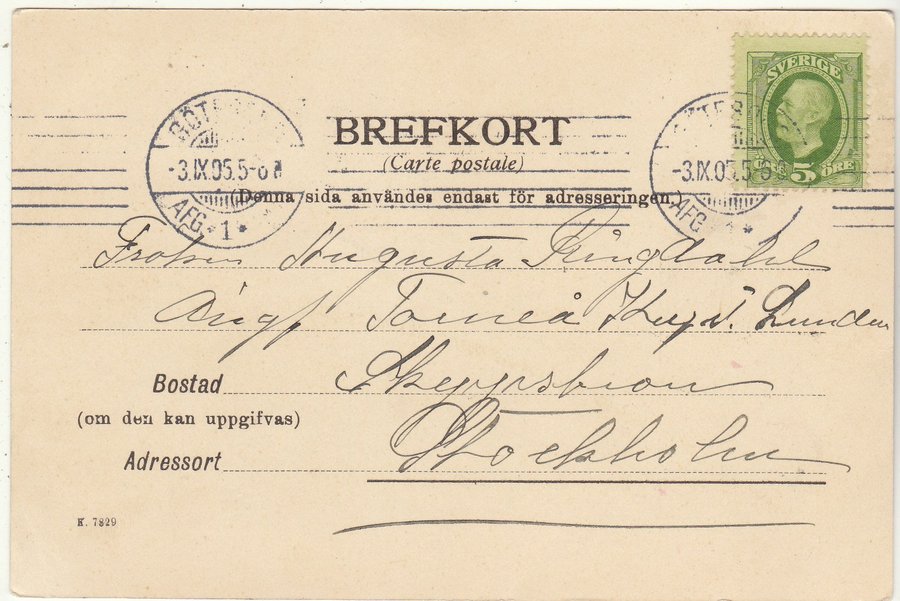 SVERIGE
5 ÖRE
BREFKORT
(Carte postale)
GÖTEBORG
-3.IX.05.5-6
AFG 1
-3.IX.05.5-6
AFG 1
(Denna sida användes endast för adresseringen.)
Fröken Augusta Ringdahl
Ångf Torneå Kapt. Lunden
Bostad Skeppsbron
(om den kan uppgifvas)
Adressort Stockholm
K. 7829